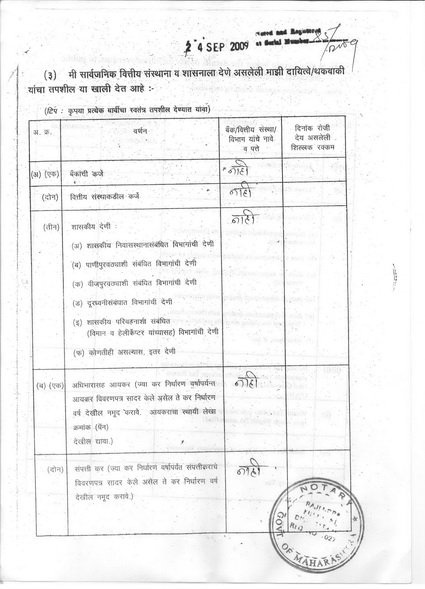 2 4 SEP 2009
Noted and Registered
at Serial Number
(३) मी सार्वजनिक वित्तीय संस्थाना व शासनाला देणे असलेली माझी दायित्वे/थकबाकी
यांचा तपशील या खाली देत आहे :-
(टिप : कृपया प्रत्येक बाबींचा स्वतंत्र तपशील देण्यात यावा)
अ. क्र. वर्णन बँक/वित्तीय संस्था/ विभाग यांचे नावे व पत्ते दिनांक रोजी देय असलेली शिल्लक रक्कम
(अ) (एक) बँकांची कर्जे नाही
(दोन) वित्तीय संस्थाकडील कर्जे नाही
(तीन) शासकीय देणी : नाही
(अ) शासकीय निवासस्थानासंबंधित विभागांची देणी
(ब) पाणीपुरवठ्याशी संबंधित विभागांची देणी
(क) वीजपुरवठ्याशी संबंधित विभागांची देणी
(ड) दूरध्वनीसंबंधात विभागांची देणी
(इ) शासकीय परिवहनाशी संबंधित
(विमान व हेलीकॅप्टर यांच्यासह) विभागांची देणी
(फ) कोणतीही असल्यास, इतर देणी
(ब) (एक) अधिभारासह आयकर (ज्या कर निर्धारण वर्षापर्यन्त नाही
आयकर विवरणपत्र सादर केले असेल ते कर निर्धारण
वर्ष देखील नमूद करावे. आयकराचा स्थायी लेखा
क्रमांक (पॅन)
देखील द्यावा.)
(दोन) संपत्ती कर (ज्या कर निर्धारण वर्षापर्यंत संपत्तीकराचे नाही
विवरणपत्र सादर केले असेल ते कर निर्धारण वर्ष
देखील नमूद करावे.)
NOTARY
GOVT OF MAHARASHTRA